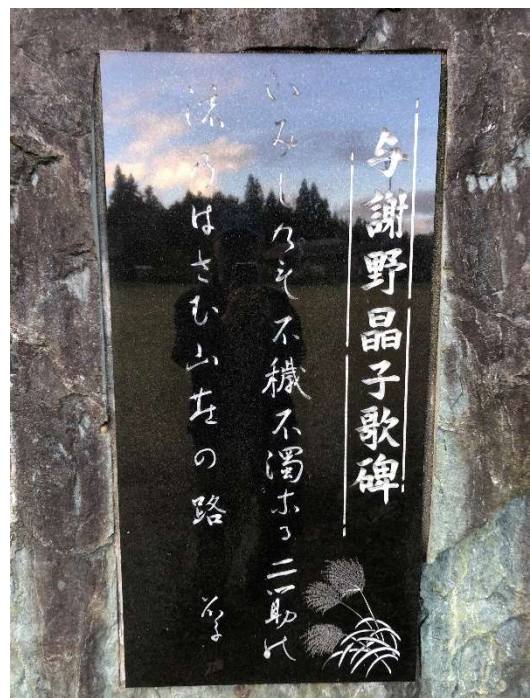 与謝野晶子歌碑
いみしくも不穢不濁なる二筋の
流のはさむ山荘の路 晶子